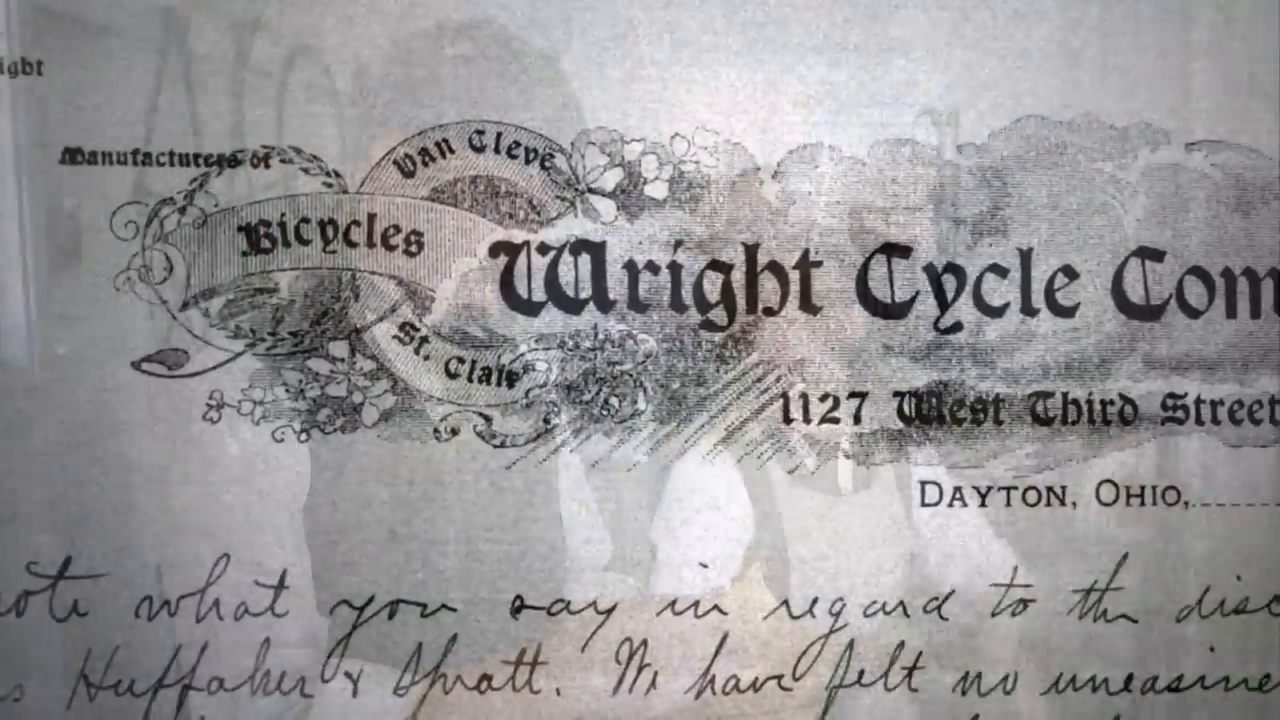 ight
Manufacturers of
Van Cleve
Bicycles
St. Clair
Wright Cycle Com
1127 West Third Street
DAYTON, OHIO,
ote what you say in regard to the disc
s Huffaker & Spratt. We have felt no uneasine